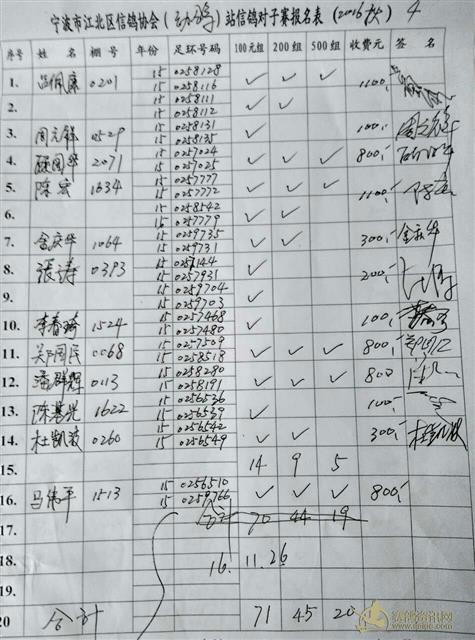 宁波市江北区信鸽协会(动鸽)站信鸽对子赛报名表(2016秋) 4
序号 姓名 棚号 年份 足环号码 100元组 200组 500组 收费元 签名
1. 吕佩康 0201 15 0258128 ✓ ✓ ✓ 1100.-
15 0258116
2. 15 0258111 ✓ ✓
15 0258112
3. 周元锋 0529 15 0258131 ✓ 100.- 周元锋
15 0258135
4. 2071 15 0257024 ✓ ✓ ✓ 800.-
15 0257025
5. 陈宏 1634 15 0257777 ✓ ✓ ✓ 1100.- 陈宏
15 0257772
6. 15 0258542 ✓ ✓
16 0257779
7. 金庆华 1064 15 0259735 ✓ ✓ 300.- 金庆华
15 0259731
8. 张涛 0393 15 0257144 ✓ 200.-
15 0257931
9. 15 0259704 ✓
15 0259703
10. 李春 1524 15 0257468 ✓ 100.-
15 0257480
11. 吴国民 0068 15 0257509 ✓ ✓ ✓ 800.-
15 0258518
12. 潘群辉 0113 15 0258280 ✓ ✓ ✓ 800
15 0258191
13. 陈 1622 15 0256536 ✓ 100.-
15 0256539
14. 杜凯波 0260 15 0256542 ✓ ✓ 300.- 杜凯波
15 0256549
15. 14 9 5
16. 马伟平 1513 15 0256510 ✓ ✓ ✓ 800.-
15 0259766
17. 合计 70 44 19
18. 16.11.26
19.
20 合计 71 45 20
赛鸽资讯网